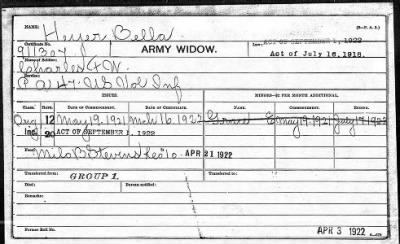 NAME: Heyer Bella (S.-P. A. I.)
Certificate No. 911307 ARMY WIDOW. Law: ACT OF SEPTEMBER 1, 1922
Act of July 16, 1918.
Name of Soldier:
Charles F W.
Service:
Co A 47 US Vol Inf
ISSUES. MINORS—$2 PER MONTH ADDITIONAL.
CLASS. RATE. DATE OF COMMENCEMENT. DATE OF CERTIFICATE. NAME. COMMENCEMENT.
Orig 12 May 19. 1921 Mch 16. 1922 Grace May 19. 1921 July 1922
Inc 20 ACT OF SEPTEMBER 1, 1922
Milo B Stevens & Co APR 21 1922
Transferred from: Date: Bureau notified:
GROUP 1.
Remarks:
Former Roll No. APR 3 1922